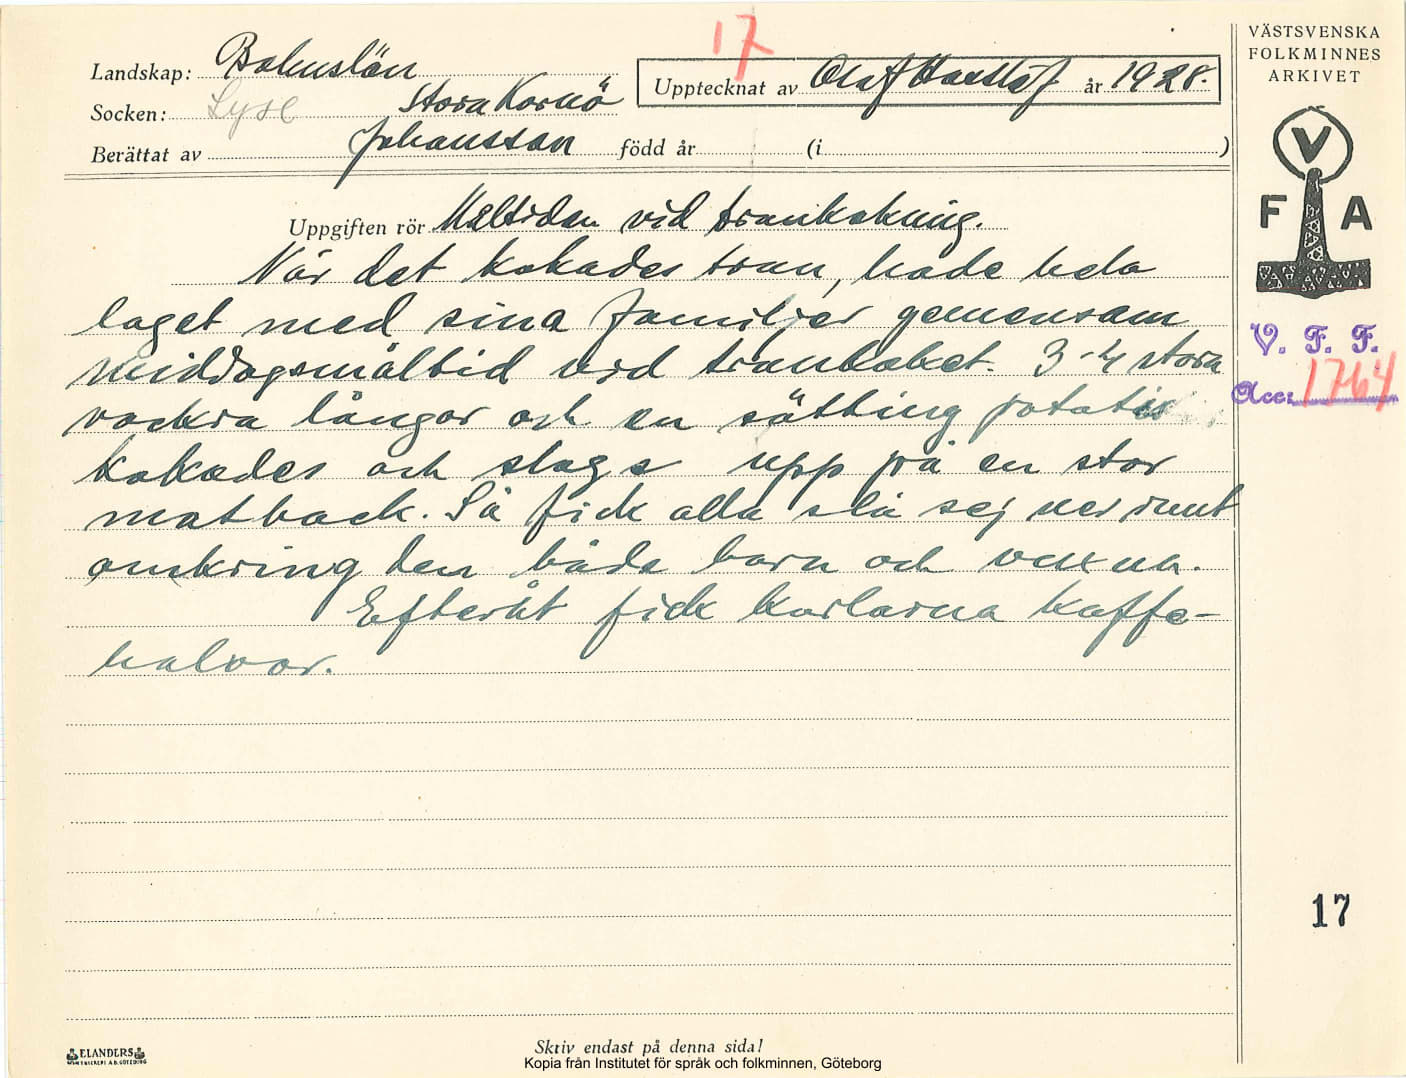 17
VÄSTSVENSKA
FOLKMINNES
ARKIVET
Landskap: Bohuslän
Upptecknat av Olof Hasslöf år 1928.
Socken: Lyse Stora Kornö
Berättat av Johansson född år (i )
V
F A
Uppgiften rör Måltiden vid trankokning.
När det kokades tran, hade hela
laget med sina familjer gemensam
middagsmåltid vid trankoket. 3-4 stora
vackra långor och en sätting potatis
kokades och slogs upp på en stor
matback. Så fick alla slå sej ner runt
omkring den både barn och vuxna.
Efteråt fick karlarna kaffe-
halvor.
V. F. F.
Acc: 1764
17
ELANDERS
Skriv endast på denna sida!
Kopia från Institutet för språk och folkminnen, Göteborg